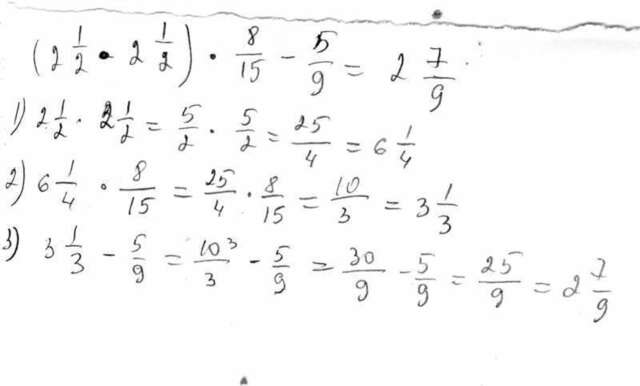 (2 1/2 · 2 1/2) · 8/15 − 5/9 = 2 7/9
1) 2 1/2 · 2 1/2 = 5/2 · 5/2 = 25/4 = 6 1/4
2) 6 1/4 · 8/15 = 25/4 · 8/15 = 10/3 = 3 1/3
3) 3 1/3 − 5/9 = 10³/3 − 5/9 = 30/9 − 5/9 = 25/9 = 2 7/9